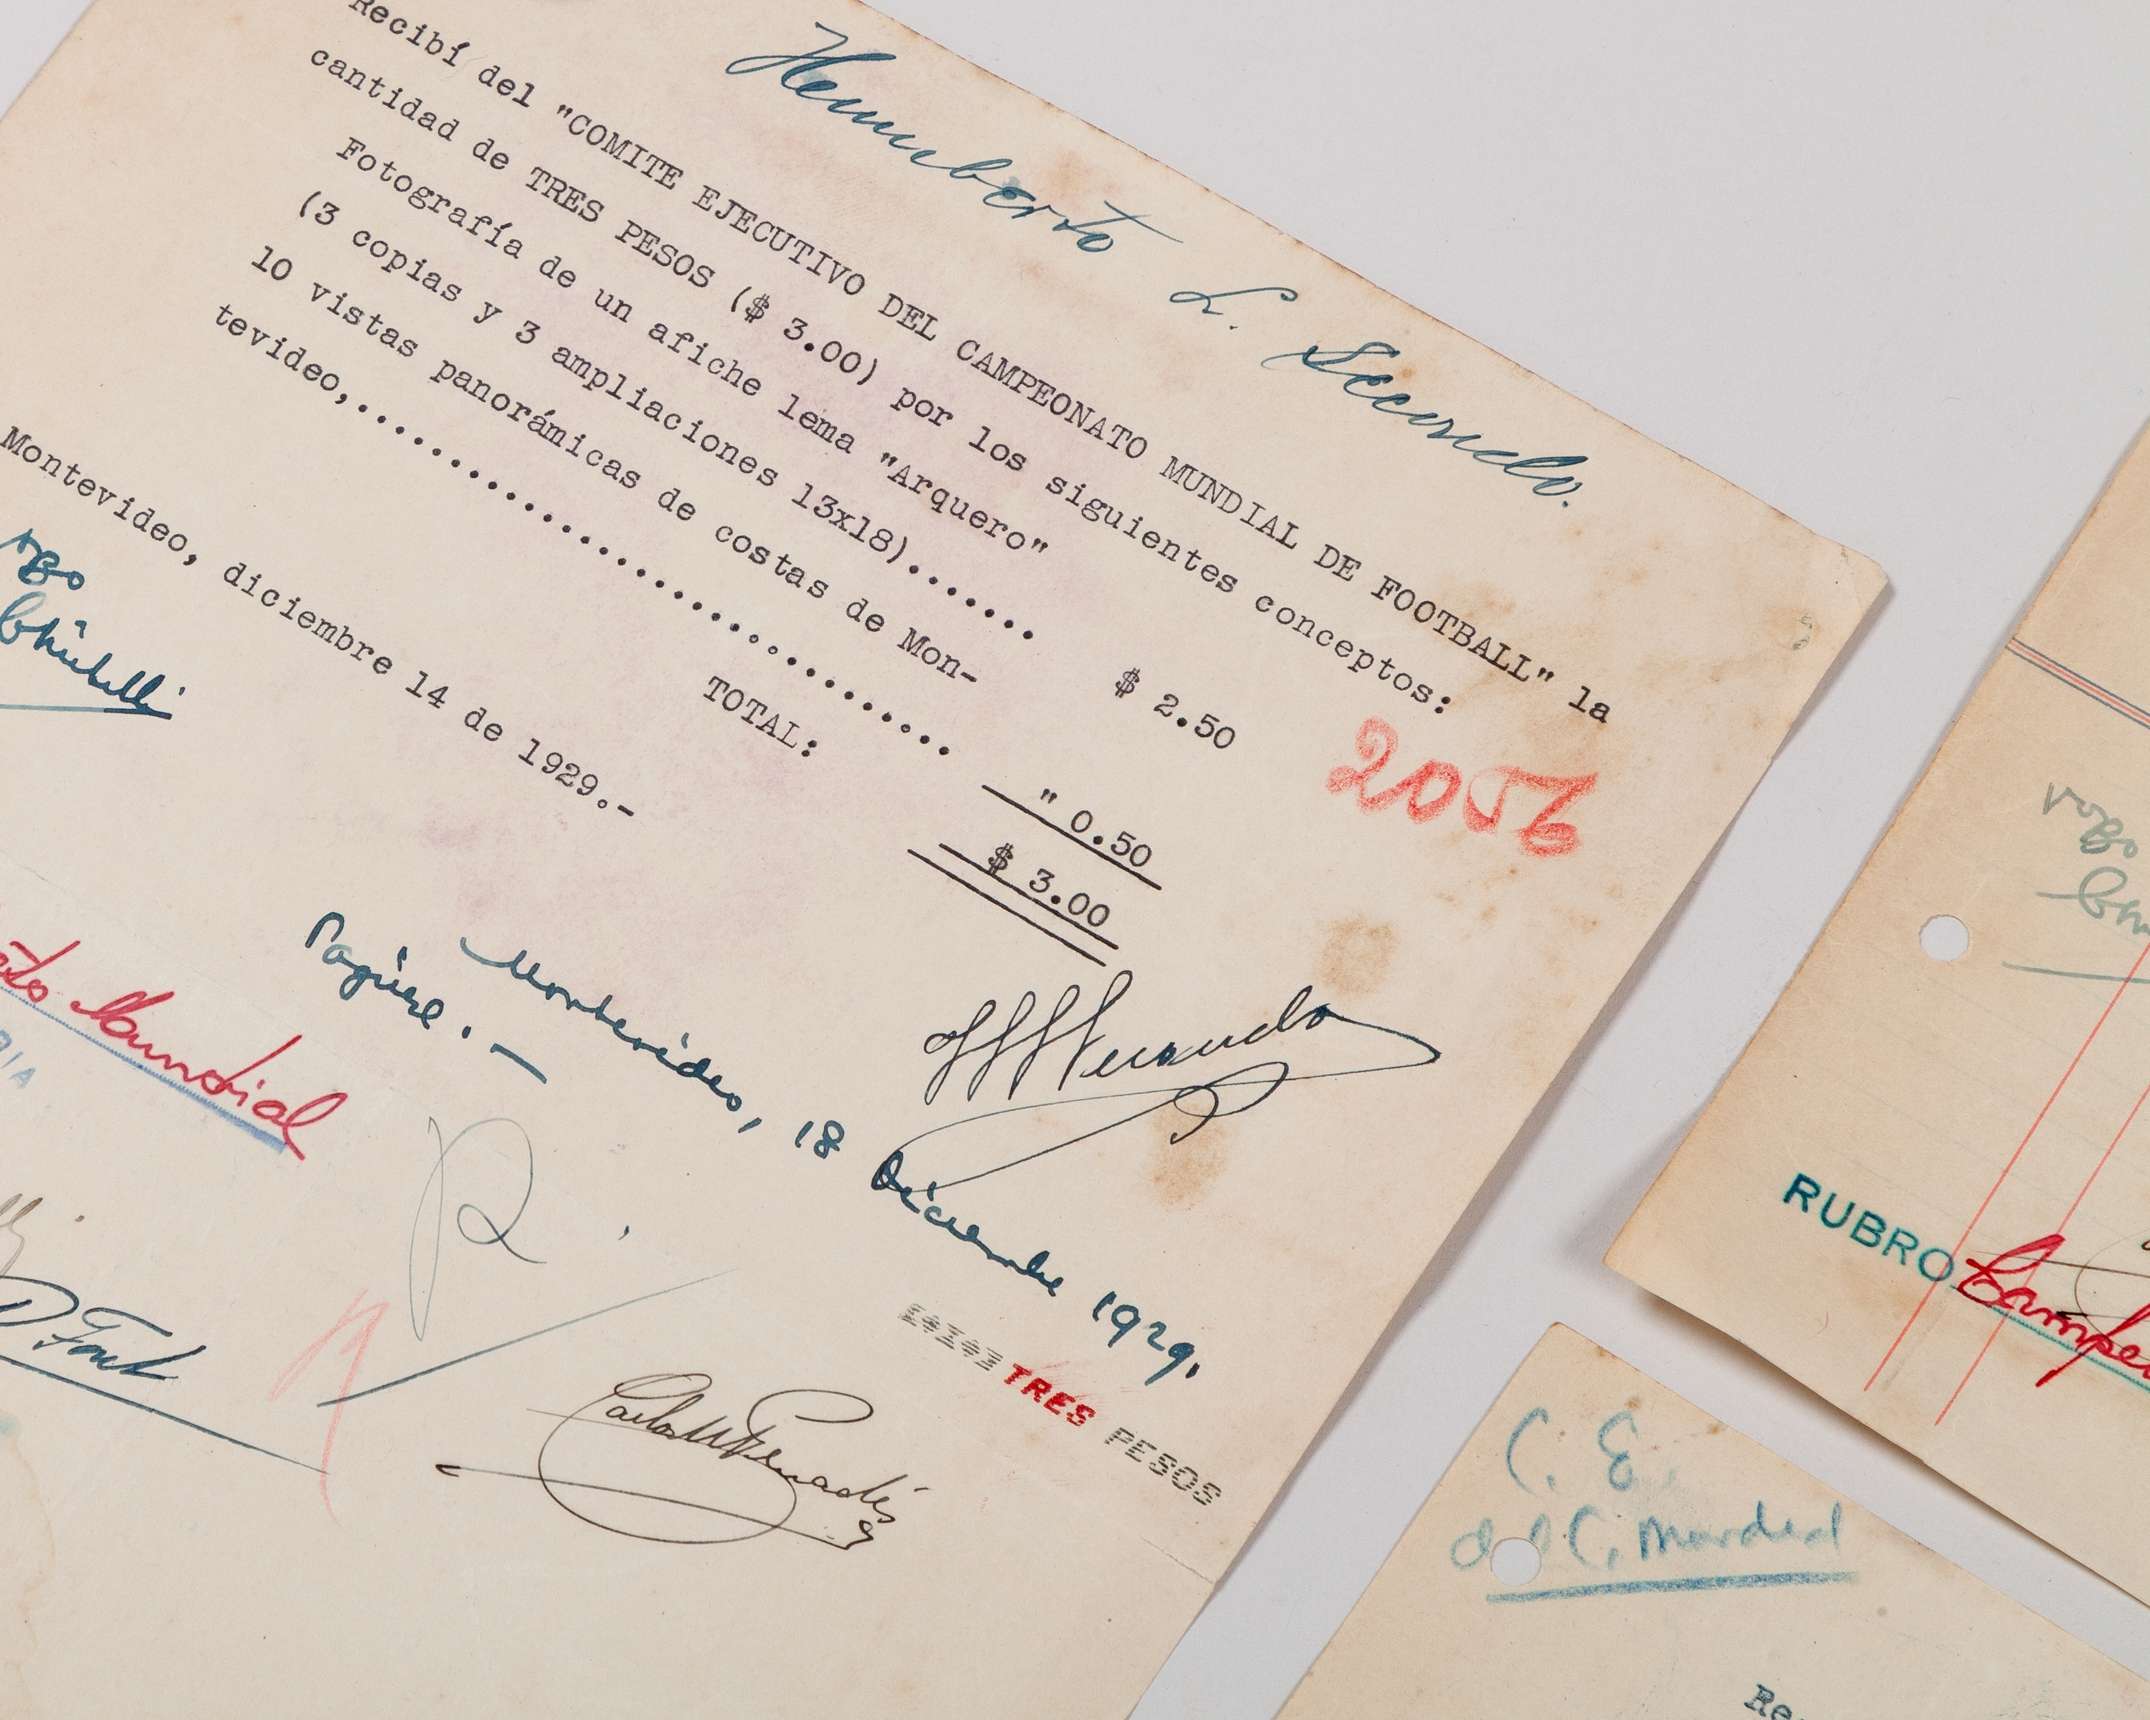 Recibí del "COMITE EJECUTIVO DEL CAMPEONATO MUNDIAL DE FOOTBALL" la
cantidad de TRES PESOS ($ 3.00) por los siguientes conceptos:
Fotografía de un afiche lema "Arquero"
(3 copias y 3 ampliaciones 13x18)....... $ 2.50
10 vistas panorámicas de costas de Mon-
tevideo,.................................... " 0.50
TOTAL: $ 3.00
Montevideo, diciembre 14 de 1929.-
Humberto L. Secondo.
2056
Mundial
Páguese.-
Montevideo, 18 Diciembre 1929.
TRES PESOS
RUBRO
C. E.
del C. Mundial
Re